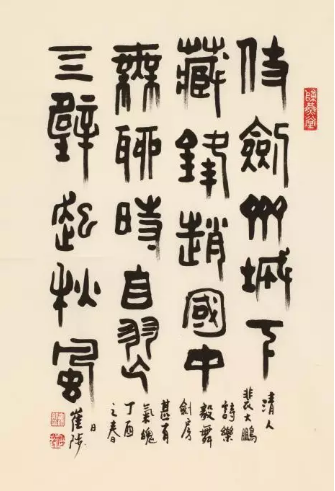 劍州城下
藏鋒趙國中
無聊時自
三起秋風
清人
裴大鵬
詩樂
毅舞
劍房
甚有
氣魄
丁酉
之春
日
崔陟